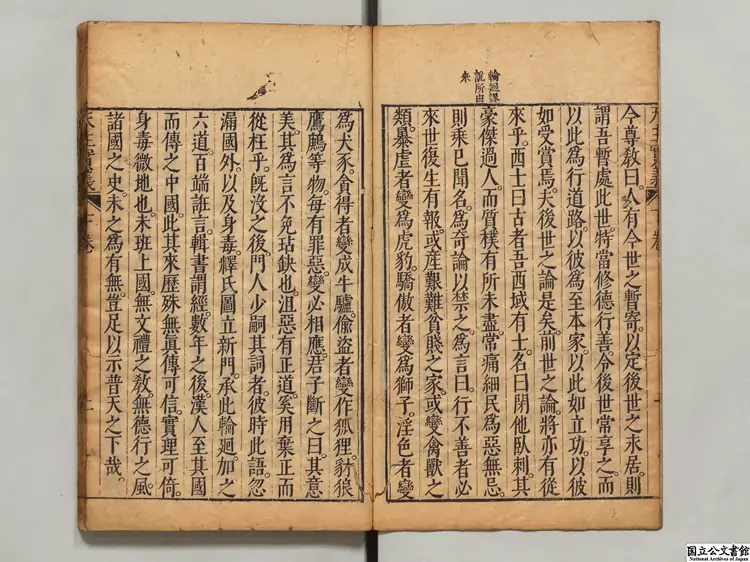 輪廻謬
誕所由
来
今尊教曰人有今世之暫寄以定後世之永居則
謂吾暫處此世特當修德行善令後世常享之而
以此為行道路以彼為至本家以此如立功以彼
如受賞焉夫後世之論是矣前世之論將亦有從
來乎西士曰古者吾西域有士名曰閉他臥剌其
豪傑過人而質樸有所未盡常痛細民為惡無忌
則乘已聞名為奇論以禁之為言曰行不善者必
來世復生有報或産艱難貧賤之家或變禽獸之
類暴虐者變為虎豹驕傲者變為獅子淫色者變
為犬豕貪得者變成牛驢偷盜者變作狐狸豺狼
鷹鷂等物每有罪惡變必相應君子斷之曰其意
美其為言不免玷缺也沮惡有正道奚用棄正而
從枉乎既没之後門人少嗣其詞者彼時此語忽
漏國外以及身毒釋氏圖立新門承此輪廻加之
六道百端誑言輯書謂經數年之後漢人至其國
而傳之中國此其來歷殊無真傳可信實理可倚
身毒微地也未班上國無文禮之敎無德行之風
諸國之史未之為有無豈足以示普天之下哉
天主實義
下卷
国立公文書館
National Archives of Japan